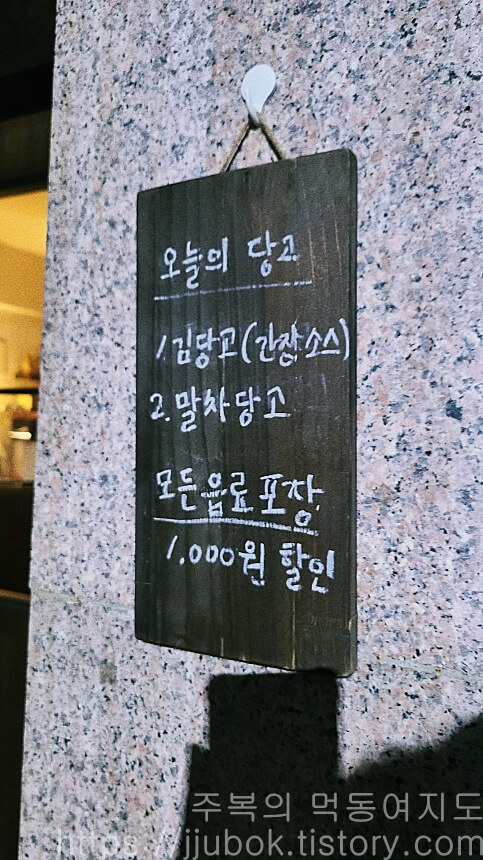 오늘의 당고
1 김당고(간장소스)
2. 말차당고
모든음료포장
1,000원 할인
주복의 먹동여지도
https://jjubok.tistory.com